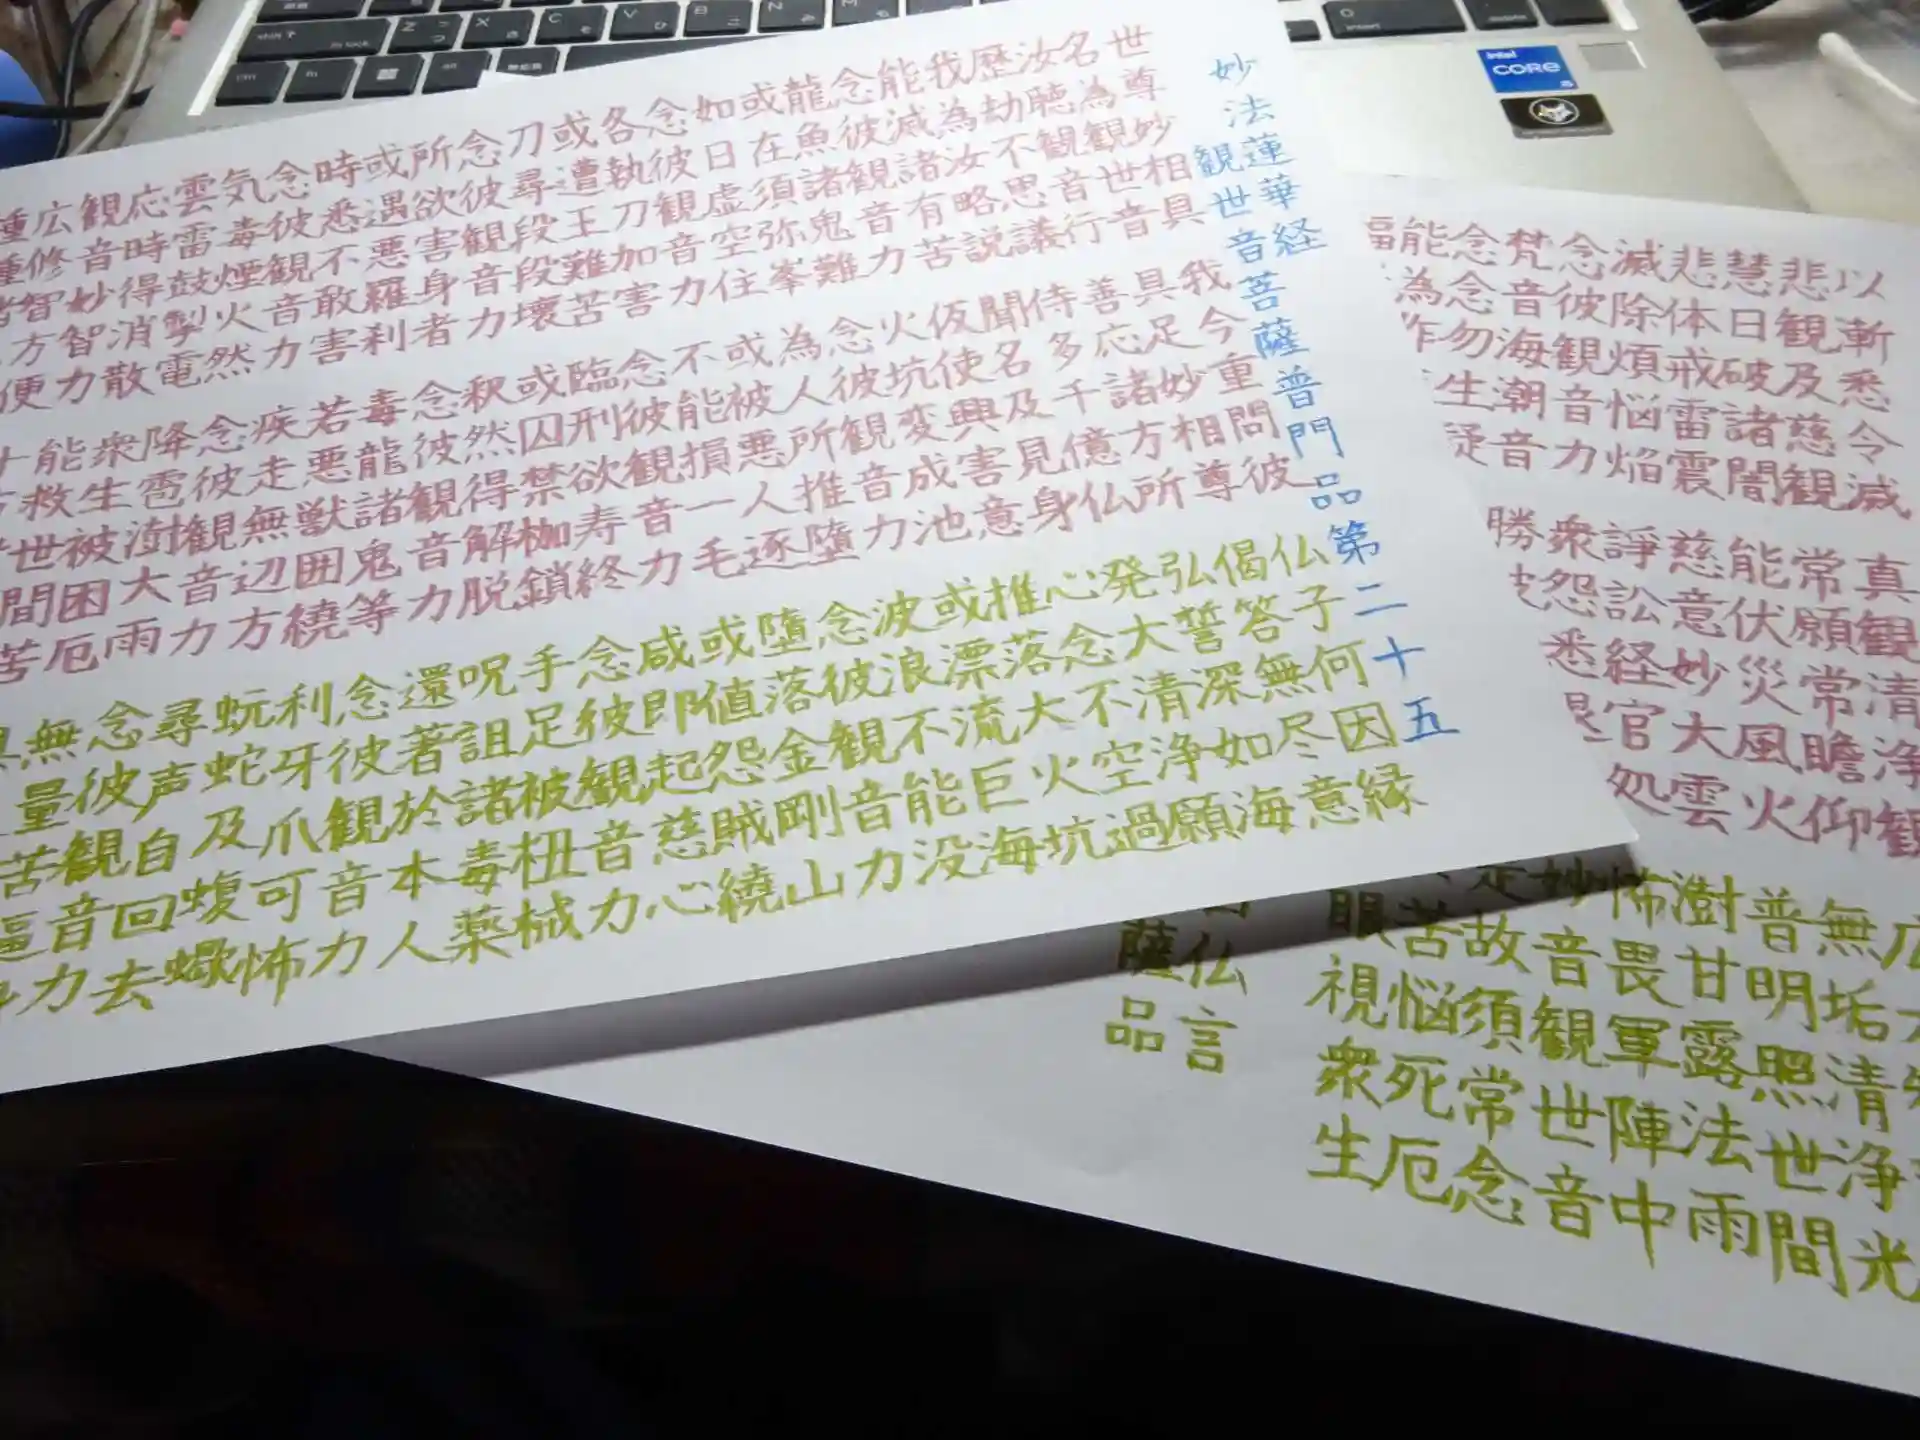 妙法蓮華経
観世音菩薩普門品第二十五
世尊妙相具 我今重問彼 仏子何因縁
名為観世音 具足妙相尊 偈答無尽意
汝聴観音行 善応諸方所 弘誓深如海
歴劫不思議 侍多千億仏 発大清浄願
我為汝略説 聞名及見身 心念不空過
能滅諸有苦 仮使興害意 推落大火坑
念彼観音力 火坑変成池 或漂流巨海
龍魚諸鬼難 念彼観音力 波浪不能没
或在須弥峯 為人所推墮 念彼観音力
如日虚空住 或被悪人逐 墮落金剛山
念彼観音力 不能損一毛 或値怨賊繞
各執刀加害 念彼観音力 咸即起慈心
或遭王難苦 臨刑欲寿終 念彼観音力
刀尋段段壊 或囚禁枷鎖 手足被杻械
念彼観音力 釈然得解脱 呪詛諸毒薬
所欲害身者 念彼観音力 還著於本人
或遇悪羅刹 毒龍諸鬼等 念彼観音力
時悉不敢害 若悪獣囲繞 利牙爪可怖
念彼観音力 疾走無辺方 蚖蛇及蝮蠍
気毒煙火然 念彼観音力 尋声自回去
雲雷鼓掣電 降雹澍大雨 念彼観音力
応時得消散 衆生被困厄 無量苦逼身
観音妙智力 能救世間苦 具
広修智方便 十
以漸悉令滅 真観清浄観 広
悲観及慈観 常願常瞻仰 無垢清浄光
慧日破諸闇 能伏災風火 普明照世間
悲体戒雷震 慈意妙大雲 澍甘露法雨
滅除煩悩焔 諍訟経官処 怖畏軍陣中
念彼観音力 衆怨悉 妙音観世音
梵音海潮音 勝 故須常念
念念勿生疑 苦悩死厄
能為作 眼視衆生
仏言
薩品
intel
CORE
i5